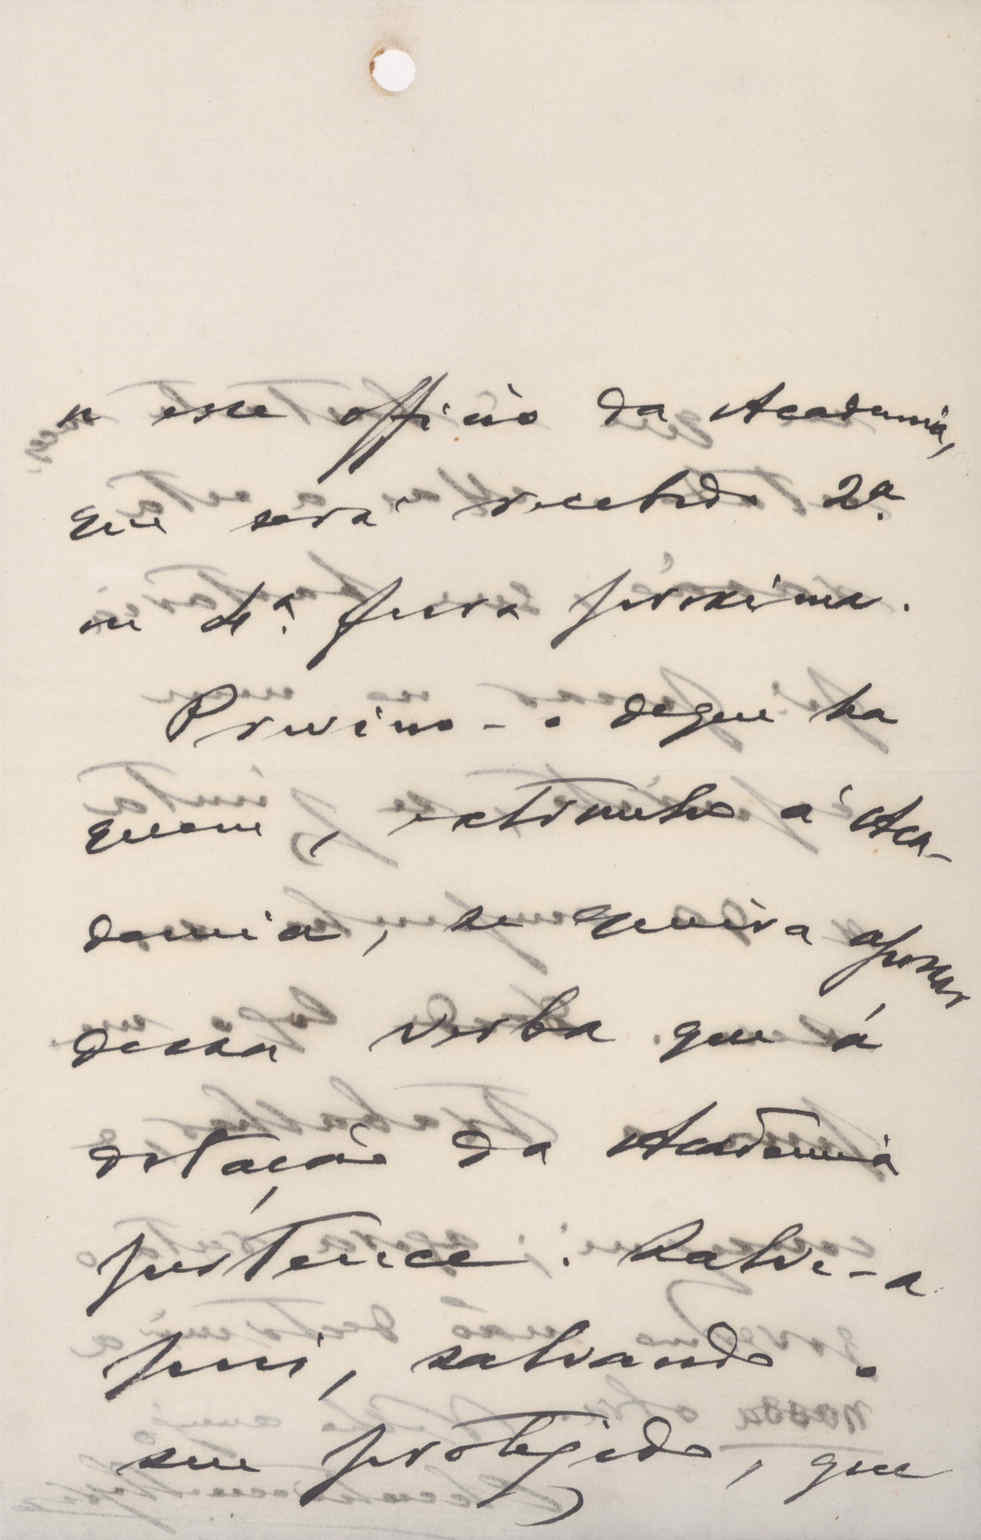 n esse officio da Academia,
que será recebido 2ª
ou 4ª feira proxima.
Previno-o de que ha
quem, extranho á Aca-
demia, se queira apossar
dessa verba que á
dotação da Academia
pertence. Salve-a
pois, salvando o
seu protegido, que